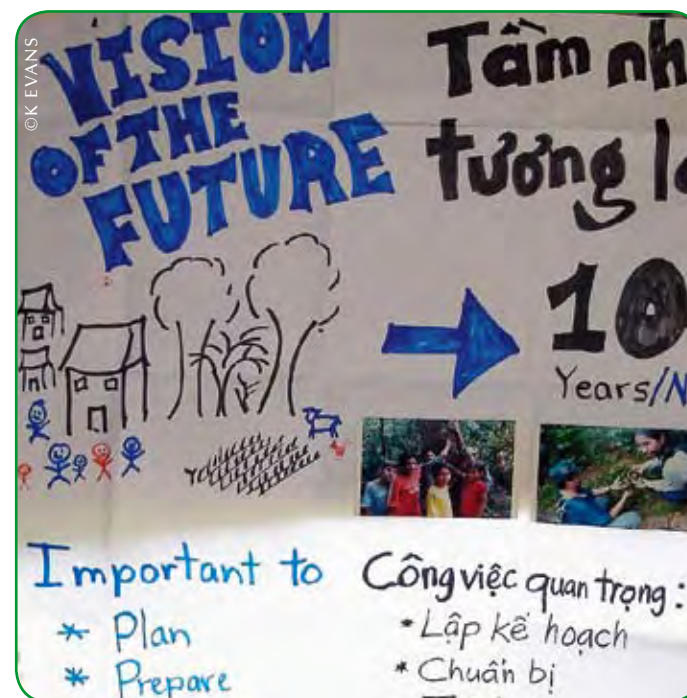 ©K EVANS
VISION
OF THE
FUTURE
Tầm nh
tương l
10
Years/N
Important to
* Plan
* Prepare
Công việc quan trọng:
* Lập kế hoạch
* Chuẩn bị